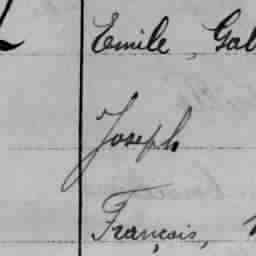 Emile, Gab
Joseph
François,